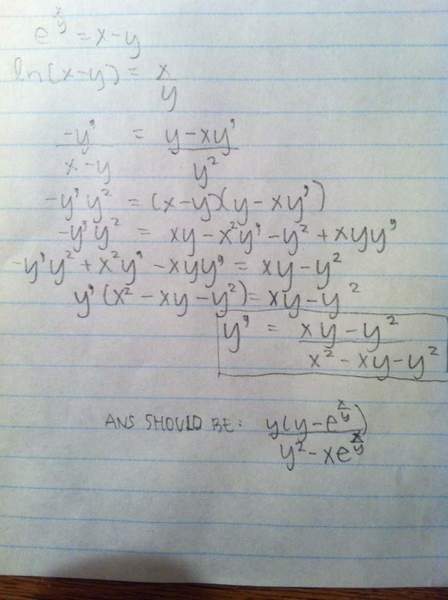 e^(x/y) = x - y
ln(x-y) = x/y
-y'/(x-y) = (y - xy')/y²
-y'y² = (x-y)(y-xy')
-y'y² = xy - x²y' - y² + xyy'
-y'y² + x²y' - xyy' = xy - y²
y'(x² - xy - y²) = xy - y²
y' = (xy - y²)/(x² - xy - y²)
ANS SHOULD BE: y(y - e^(x/y))/(y² - xe^(x/y))